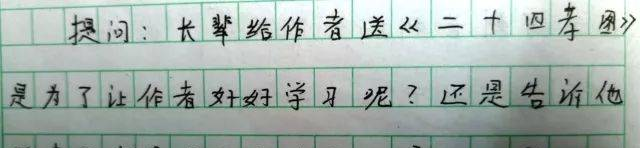 提问：长辈给作者送《二十四孝图》
是为了让作者好好学习呢？还是告诉他